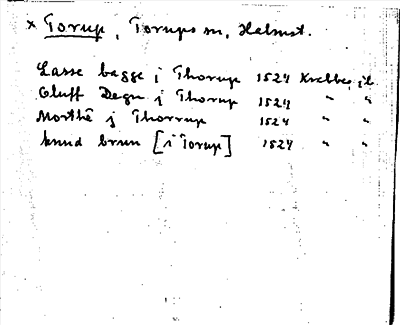 × Torup, Torups sn, Halmst.
Lasse bagge j Thorup 1524 Krabbe, jb.
Oluff Degn j Thorup 1524 " "
Morthē j Thorrup 1524 " "
knud brun [i Torup] 1524 " "